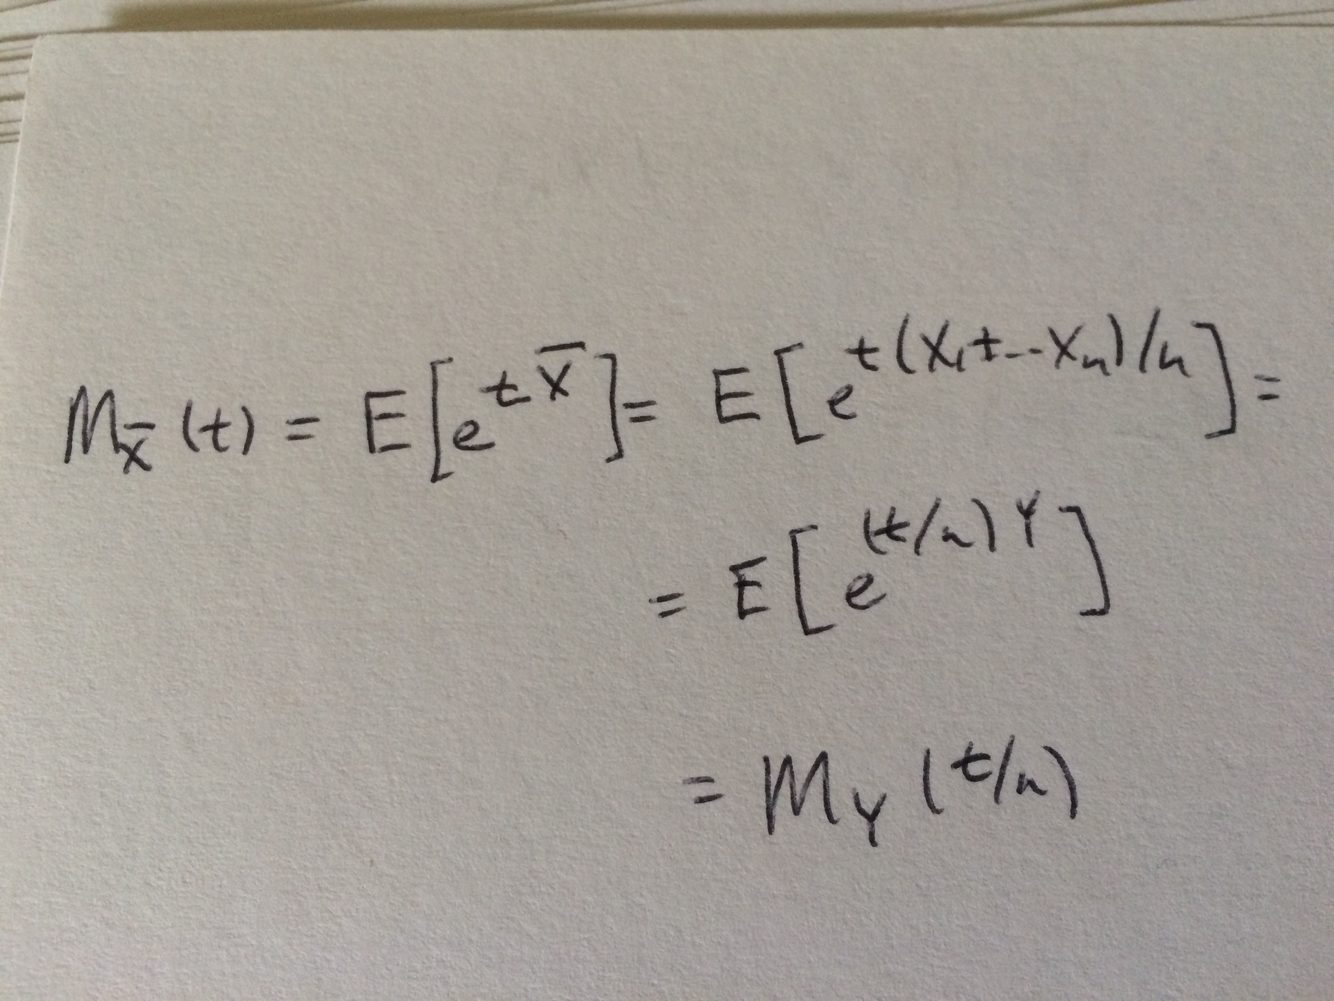 M_X̄ (t) = E[e^{t X̄}] = E[e^{t(X₁+--Xₙ)/n}] =
= E[e^{(t/n) Y}]
= M_Y (t/n)